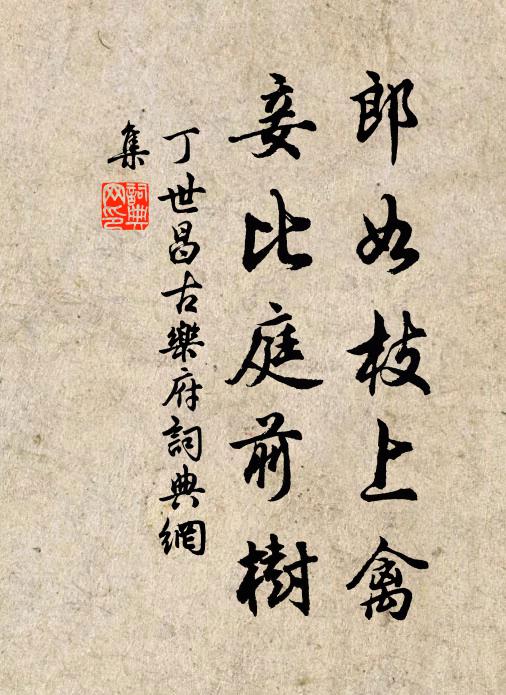 郎如枝上禽
妾比庭前樹
丁世昌古樂府詞典網
集
詞典網印